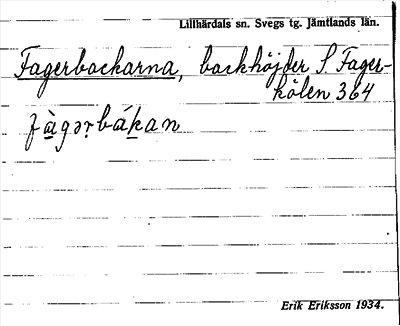 Lillhärdals sn. Svegs tg. Jämtlands län.
Fagerbackarna, backhöjder S. Fager-
kölen 364
fàgəṛbákan
Erik Eriksson 1934.